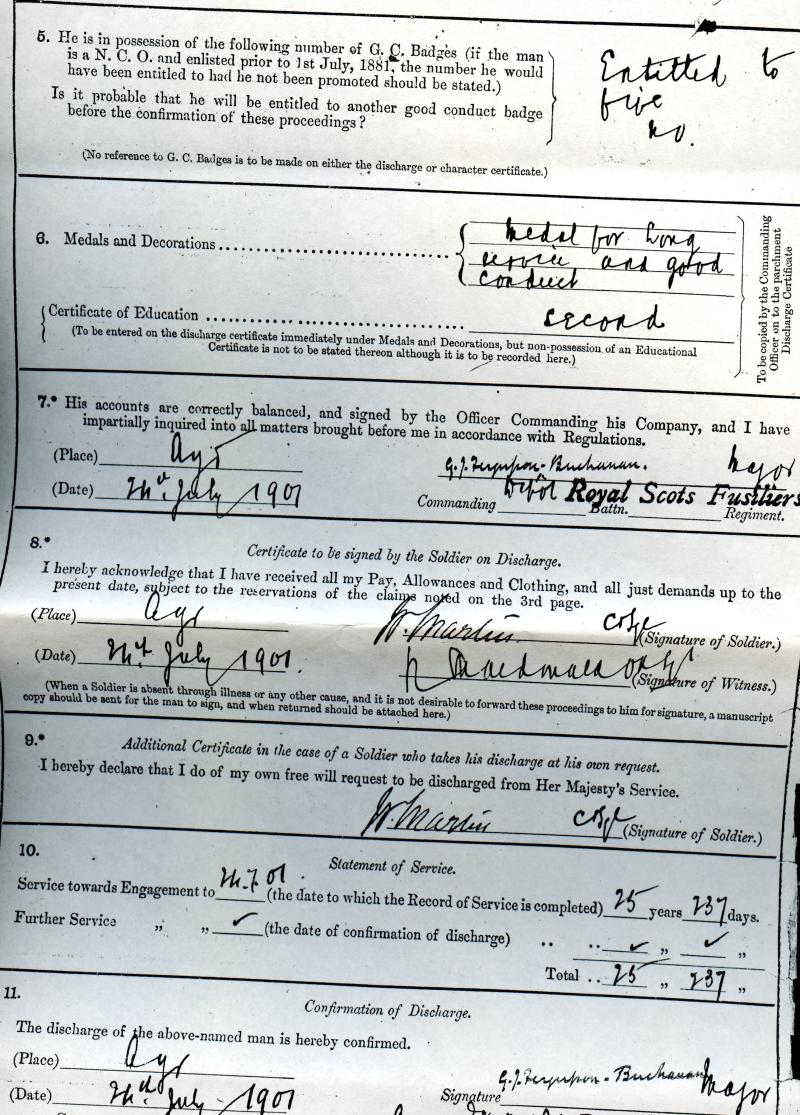 5. He is in possession of the following number of G. C. Badges (if the man
is a N. C. O. and enlisted prior to 1st July, 1881, the number he would
have been entitled to had he not been promoted should be stated.)
Entitled to
five
Is it probable that he will be entitled to another good conduct badge
before the confirmation of these proceedings?
no.
(No reference to G. C. Badges is to be made on either the discharge or character certificate.)
6. Medals and Decorations
Medal for Long
service and good
conduct
Certificate of Education
second
(To be entered on the discharge certificate immediately under Medals and Decorations, but non-possession of an Educational
Certificate is not to be stated thereon although it is to be recorded here.)
To be copied by the Commanding
Officer on to the parchment
Discharge Certificate
7.* His accounts are correctly balanced, and signed by the Officer Commanding his Company, and I have
impartially inquired into all matters brought before me in accordance with Regulations.
(Place) Ayr
G. J. Ferguson-Buchanan. Major
(Date) 24th July 1901
Commanding Depôt Royal Scots Fusiliers
Battn. Regiment.
8.* Certificate to be signed by the Soldier on Discharge.
I hereby acknowledge that I have received all my Pay, Allowances and Clothing, and all just demands up to the
present date, subject to the reservations of the claims noted on the 3rd page.
(Place) Ayr
W. Martin (Signature of Soldier.)
(Date) 24th July 1901.
Macdonald (Signature of Witness.)
(When a Soldier is absent through illness or any other cause, and it is not desirable to forward these proceedings to him for signature, a manuscript
copy should be sent for the man to sign, and when returned should be attached here.)
9.* Additional Certificate in the case of a Soldier who takes his discharge at his own request.
I hereby declare that I do of my own free will request to be discharged from Her Majesty's Service.
W. Martin (Signature of Soldier.)
10. Statement of Service.
Service towards Engagement to 24.7.01 (the date to which the Record of Service is completed) 25 years 237 days.
Further Service „ „ ✓ (the date of confirmation of discharge) .. .. ✓ „ ✓ „
Total .. 25 „ 237 „
11. Confirmation of Discharge.
The discharge of the above-named man is hereby confirmed.
(Place) Ayr
G. J. Ferguson-Buchanan Major
(Date) 24th July 1901
Signature